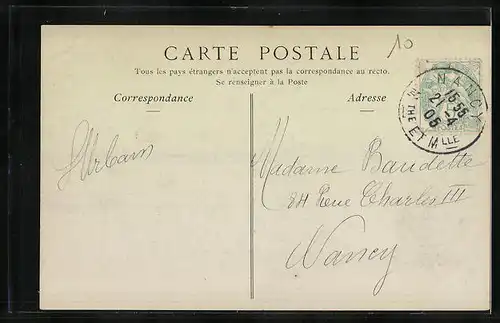 10
CARTE POSTALE
Tous les pays étrangers n'acceptent pas la correspondance au recto.
Se renseigner à la Poste
Correspondance
Adresse
NANCY
15-55
21-4
05
MTHE ET MLLE
Urbain
Madame Baudette
84 Rue Charles III
Nancy